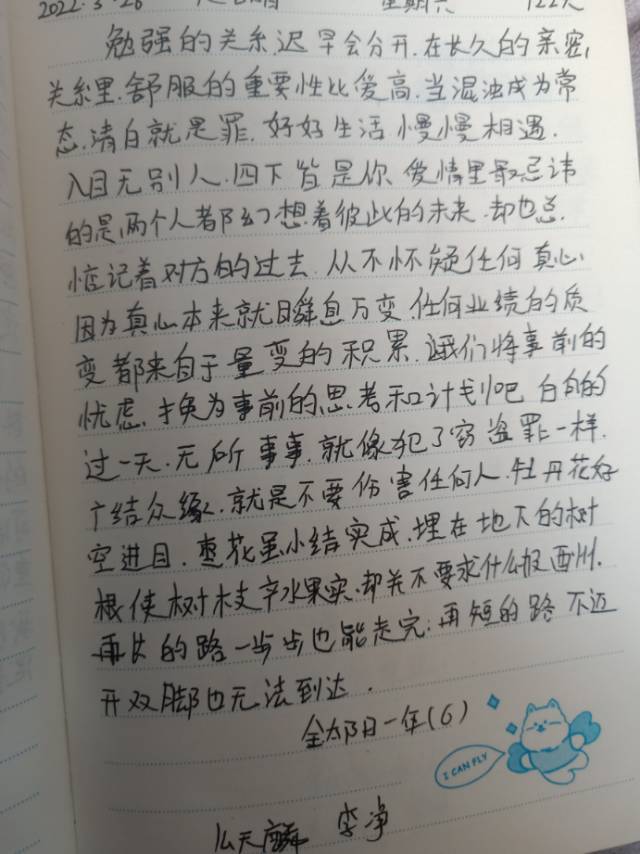 2022.3.26 星期六 122天
勉强的关系,迟早会分开,在长久的亲密,
关系里.舒服的重要性比爱高.当混浊成为常
态.清白就是罪.好好生活慢慢相遇.
入目无别人.四下皆是你、爱情里最忌讳
的是,两个人都幻想着彼此的未来.却也总.
惦记着对方的过去.从不怀疑任何真心,
因为真心本来就瞬息万变.任何业绩的质
变都来自于量变的积累.让我们将事前的
忧虑,换为事前的思考和计划吧.白白的
过一天.无所事事.就像犯了窃盗罪一样.
广结众缘.就是不要伤害任何人.牡丹花好
空进目.枣花虽小结实成.埋在地下的树
根使树枝产水果实.却关不要求什么报酬.
再长的路一步步也能走完;再短的路不迈
开双脚也无法到达.
一年(6)
I CAN FLY
李净